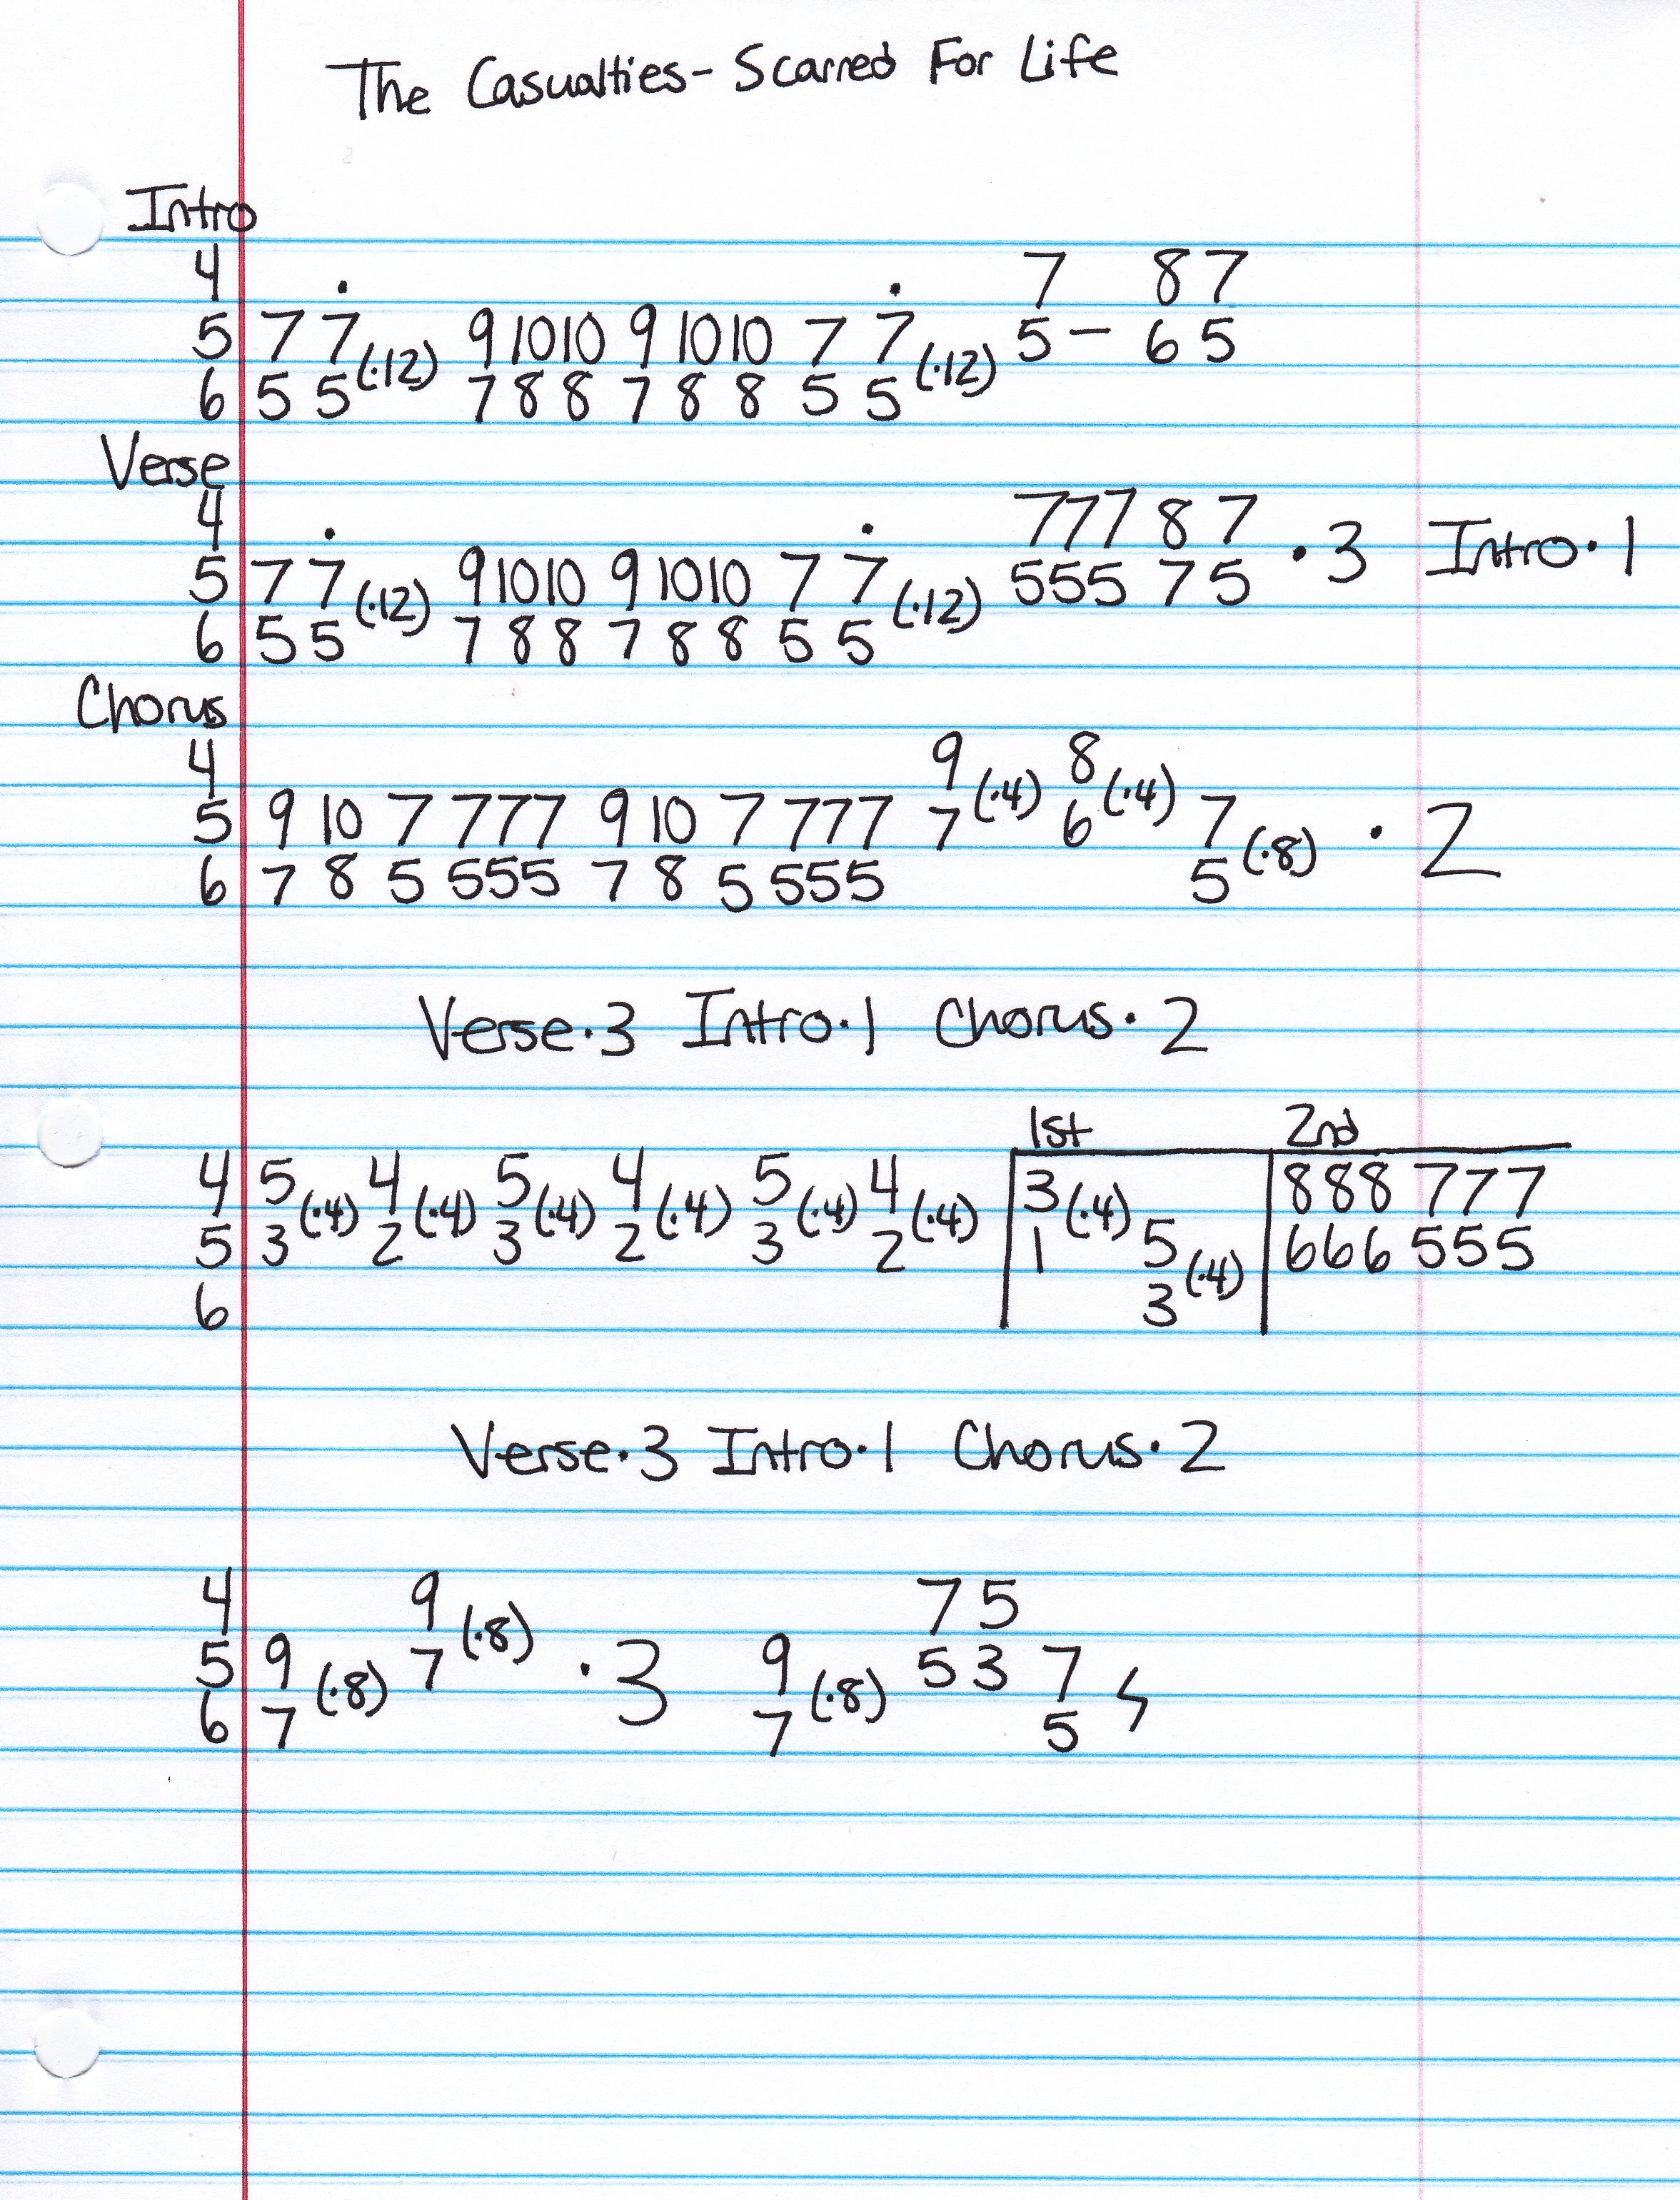 The Casualties - Scarred For Life
Intro
4 . . 7 8 7
5 7 7 (·12) 9 10 10 9 10 10 7 7 (·12) 5 – 6 5
6 5 5 7 8 8 7 8 8 5 5
Verse
4 . . 7 7 7 8 7
5 7 7 (·12) 9 10 10 9 10 10 7 7 (·12) 5 5 5 7 5 · 3 Intro · 1
6 5 5 7 8 8 7 8 8 5 5
Chorus
4 9 (·4) 8 (·4)
5 9 10 7 7 7 7 9 10 7 7 7 7 7 6 7 (·8) · 2
6 7 8 5 5 5 5 7 8 5 5 5 5 5
Verse · 3 Intro · 1 Chorus · 2
1st 2nd
4 5 (·4) 4 (·4) 5 (·4) 4 (·4) 5 (·4) 4 (·4) 3 (·4) 8 8 8 7 7 7
5 3 2 3 2 3 2 1 5 (·4) 6 6 6 5 5 5
6 3
Verse · 3 Intro · 1 Chorus · 2
4 9 (·8) 7 5
5 9 (·8) 7 · 3 9 (·8) 5 3 7
6 7 7 5